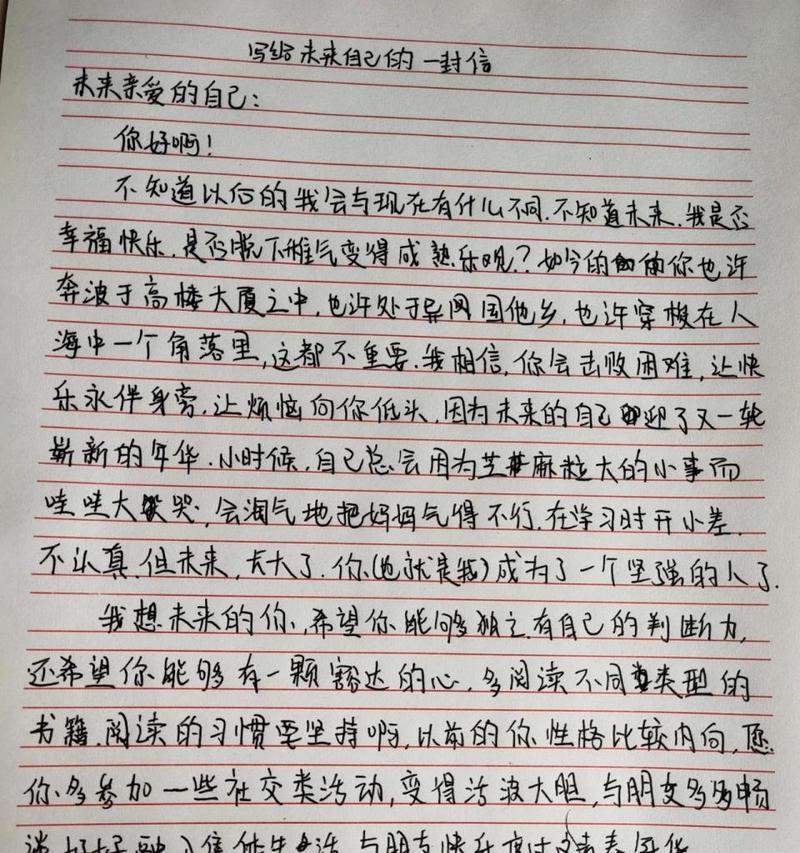 写给未来自己的一封信
未来亲爱的自己：
你好啊！
不知道以后的我会与现在有什么不同.不知道未来,我是否
幸福快乐,是否脱下稚气变得成熟乐观？如今的你也许
奔波于高楼大厦之中,也许处于异国他乡,也许穿梭在人
海中一个角落里,这都不重要.我相信,你会击败困难,让快
乐永伴身旁.让烦恼向你低头.因为未来的自己迎了又一轮
崭新的年华.小时候,自己总会因为芝麻粒大的小事而
哇哇大哭,会淘气地把妈妈气得不行.在学习时开小差.
不认真.但未来,长大了.你(也就是我)成为了一个坚强的人了.
我想未来的你,希望你能够独立有自己的判断力,
还希望你能够有一颗豁达的心.多阅读不同类型的
书籍.阅读的习惯要坚持啊,以前的你性格比较内向,愿
你多参加一些社交类活动,变得活波大胆,与朋友多多畅
谈,好好融入集体生活,与朋友快乐度过